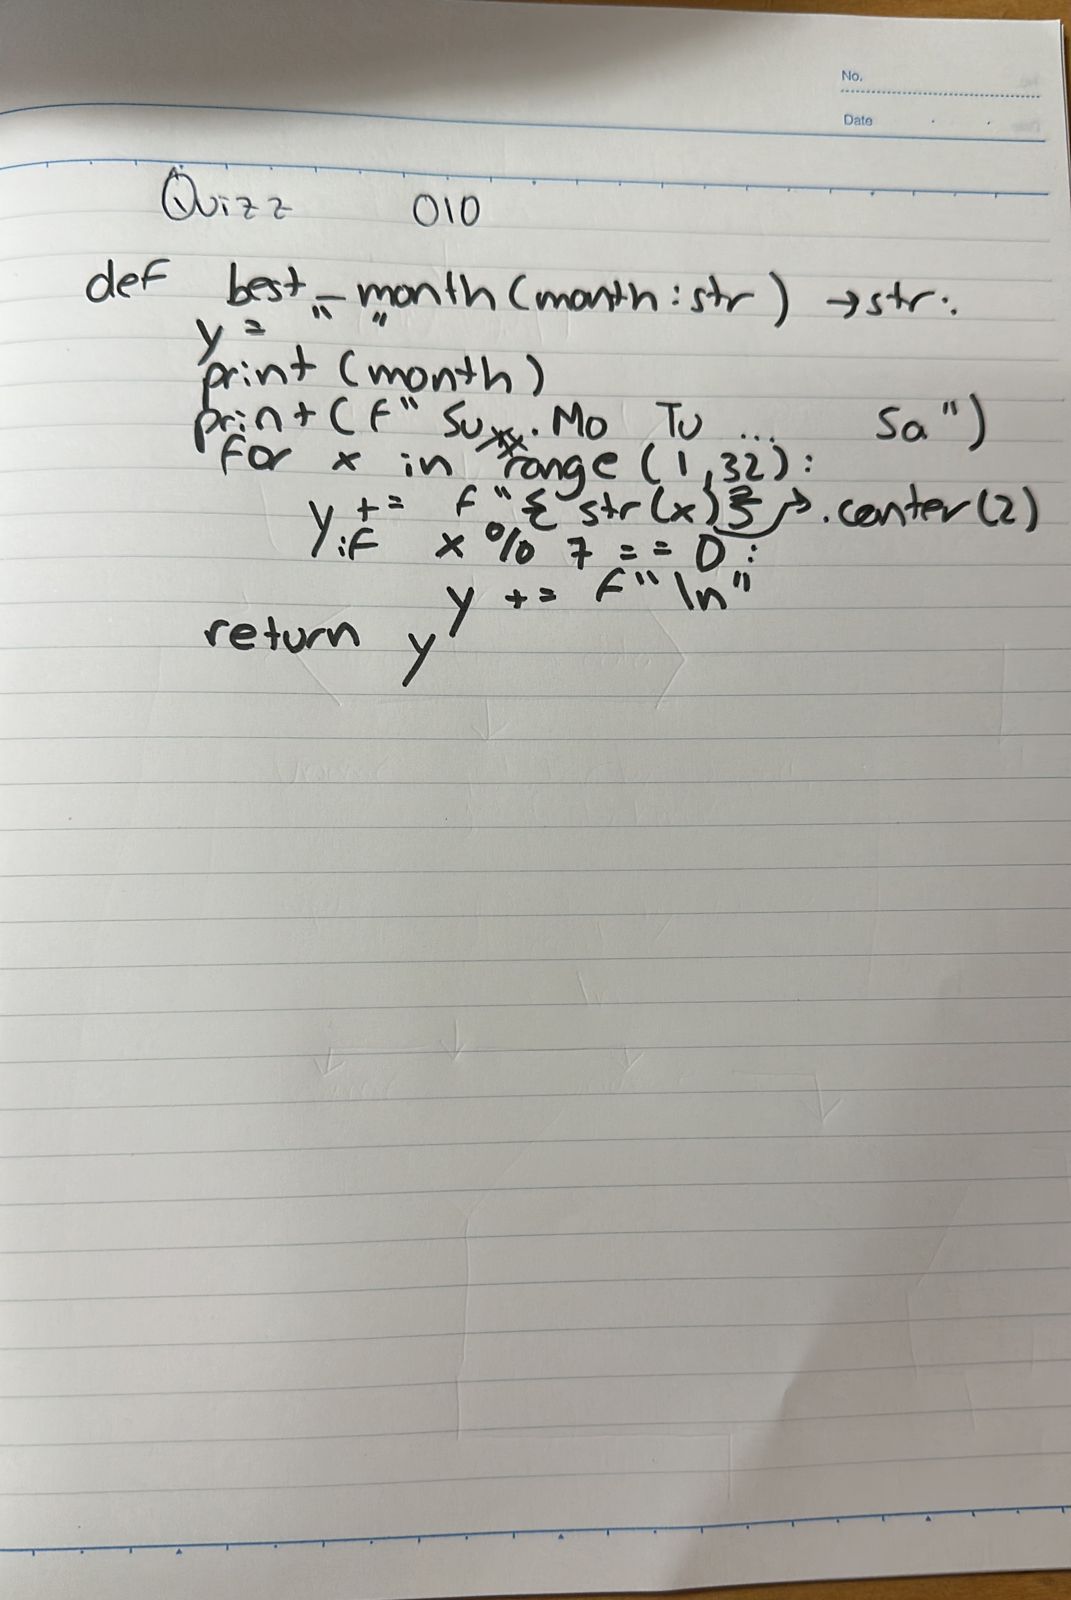 No.
Date
Quizz 010
def best_month(month:str) →str:
y = " "
print (month)
print (f" Su . Mo Tu ... Sa")
for x in range (1,32):
y += f"{ str(x)} .center(2)
if x % 7 == 0:
y += f"\n"
return y